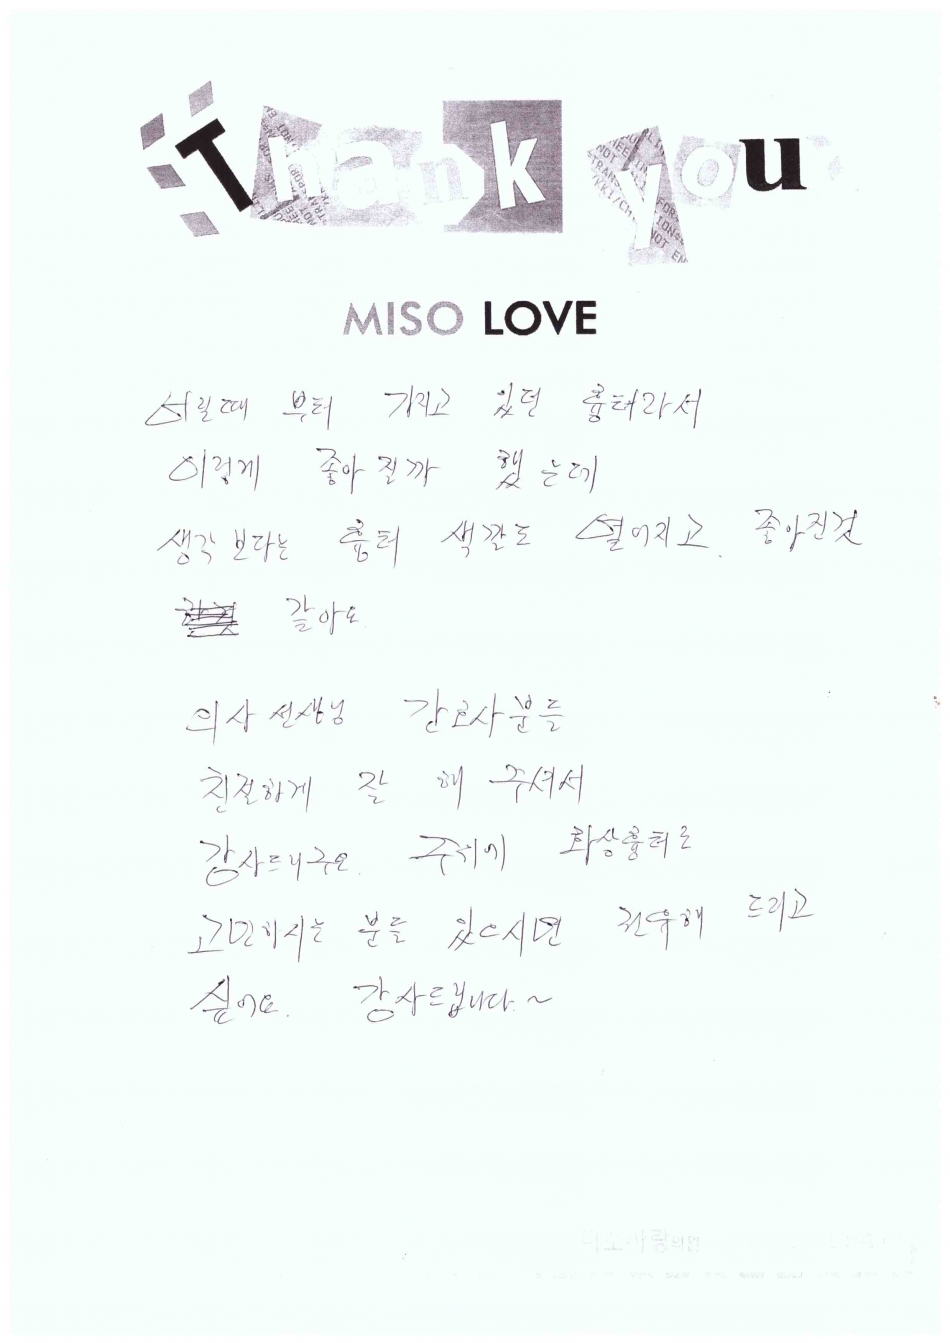 Thank you
MISO LOVE
어릴때 부터 가지고 있던 흉터라서
이렇게 좋아 질까 했는데
생각 보다는 흉터 색깔도 옅어지고. 좋아진것
같아요.
의사 선생님 간호사분들
친절하게 잘 해 주셔서
감사드리구요. 주위에 화상흉터로
고민하시는 분들 있으시면 권유해 드리고
싶어요. 감사드립니다.~